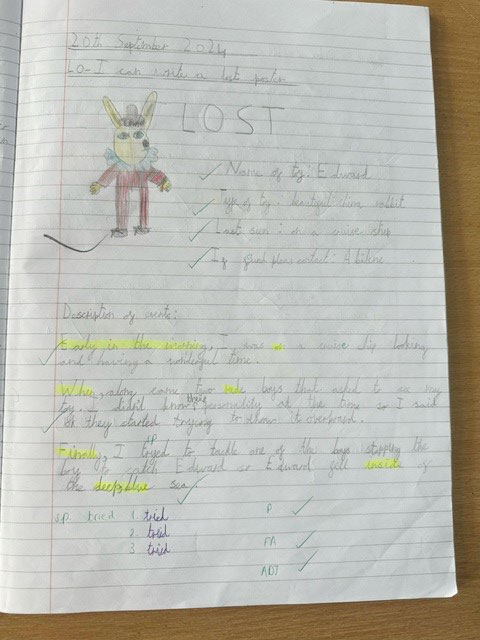 20th September 2024
LO- I can write a lost poster
LOST
Name of toy: Edward
Type of toy: beautiful china rabbit
Last seen: on a cruise ship
If found please contact: Abilene
Description of events:
Early in the morning, I was on a cruise ship looking
and having a wonderful time.
When, along came two rude boys that asked to see my
toy. I didn't know their personality at the time so I said
ok they started trying to throw it overboard.
sp
Finally, I tryed to tackle one of the boys stopping the
boy to catch Edward so Edward fell inside of
the deep, blue sea.
sp. tried 1. tried
2. tried
3. tried
P
FA
ADJ